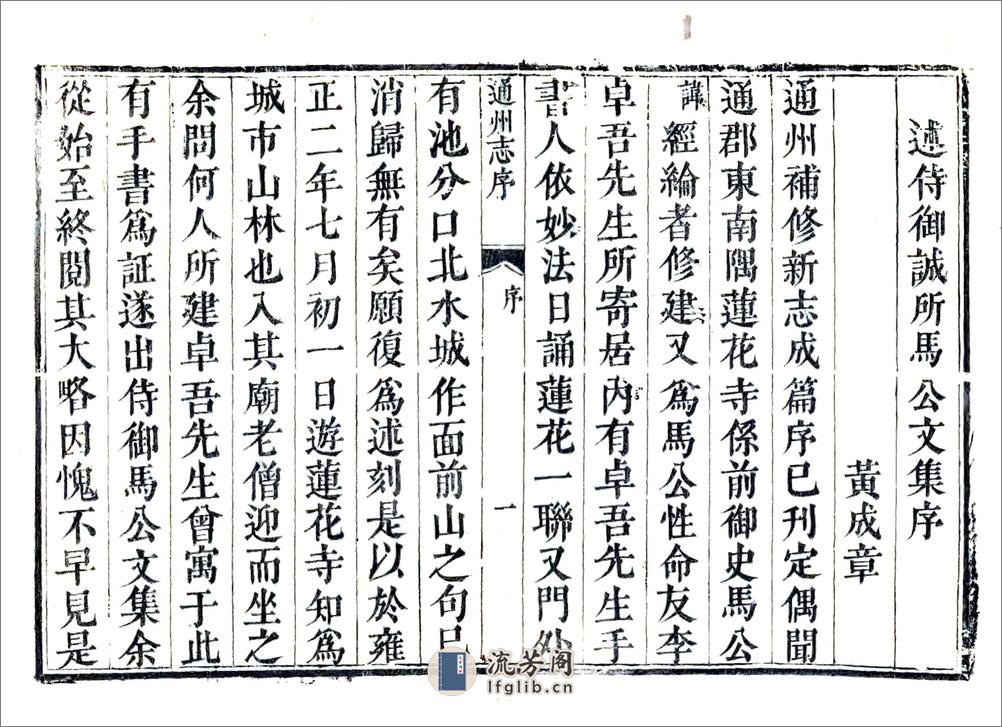 述侍御誠所馬公文集序
黃成章
通州補修新志成篇序已刊定偶聞
通郡東南隅蓮花寺係前御史馬公
諱經綸者修建又為馬公性命友李
卓吾先生所寄居內有卓吾先生手
書人依妙法日誦蓮花一聯又門外
通州志序
序
一
有池分口北水城作面前山之句已
消歸無有矣願復為述刻是以於雍
正二年七月初一日遊蓮花寺知為
城市山林也入其廟老僧迎而坐之
余問何人所建卓吾先生曾寓于此
有手書爲証遂出侍御馬公文集余
從始至終閱其大略因愧不早見是
流芳阁
lfglib.cn